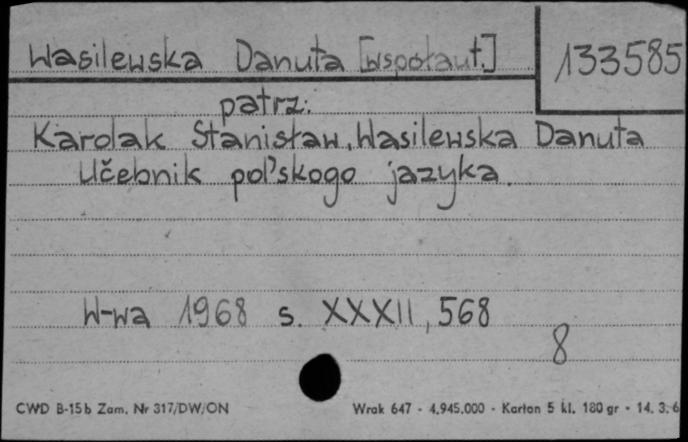 Wasilewska Danuta [współaut.]
133585
patrz:
Karolak Stanisław, Wasilewska Danuta
Učebnik pol'skogo jazyka.
W-wa 1968 s. XXXII, 568
8
CWD B-15b Zam. Nr 317/DW/ON
Wrak 647 - 4.945.000 - Karton 5 kl. 180 gr - 14. 3. 6